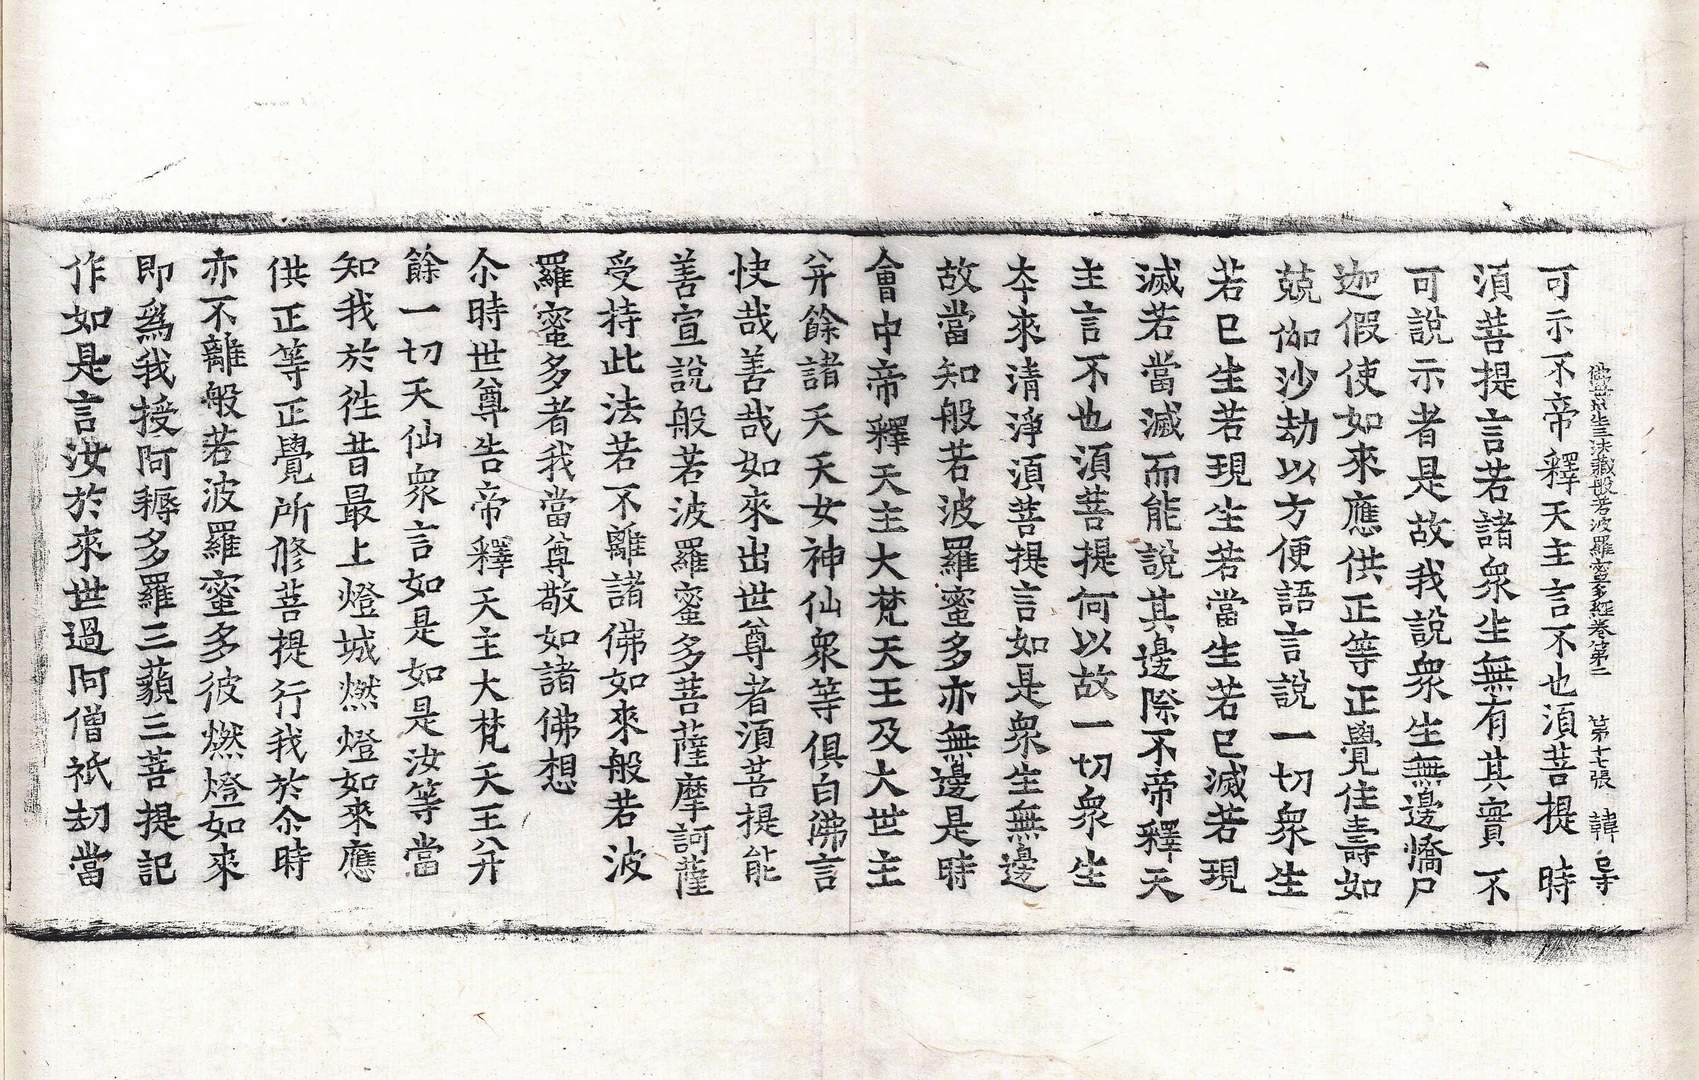 佛母出生三法藏般若波羅蜜多經卷第二 第十七張 韓
可示不帝釋天主言不也須菩提 時
須菩提言若諸衆生無有其實 不
可說示者是故我說衆生無邊憍尸
迦假使如來應供正等正覺住壽如
兢伽沙劫以方便語言說一切衆生
若已生若現生若當生若已滅若現
滅若當滅而能說其邊際不帝釋天
主言不也須菩提何以故一切衆生
夲來清淨須菩提言如是衆生無邊
故當知般若波羅蜜多亦無邊是時
會中帝釋天主大梵天王及大世主
幷餘諸天天女神仙衆等俱白佛言
快哉善哉如來出世尊者須菩提能
善宣說般若波羅蜜多菩薩摩訶薩
受持此法若不離諸佛如來般若波
羅蜜多者我當尊敬如諸佛想
尒時世尊告帝釋天主大梵天王幷
餘一切天仙衆言如是如是汝等當
知我於徃昔最上燈城燃燈如來應
供正等正覺所修菩提行我於尒時
亦不離般若波羅蜜多彼燃燈如來
即爲我授阿耨多羅三藐三菩提記
作如是言汝於來世過阿僧祇劫當